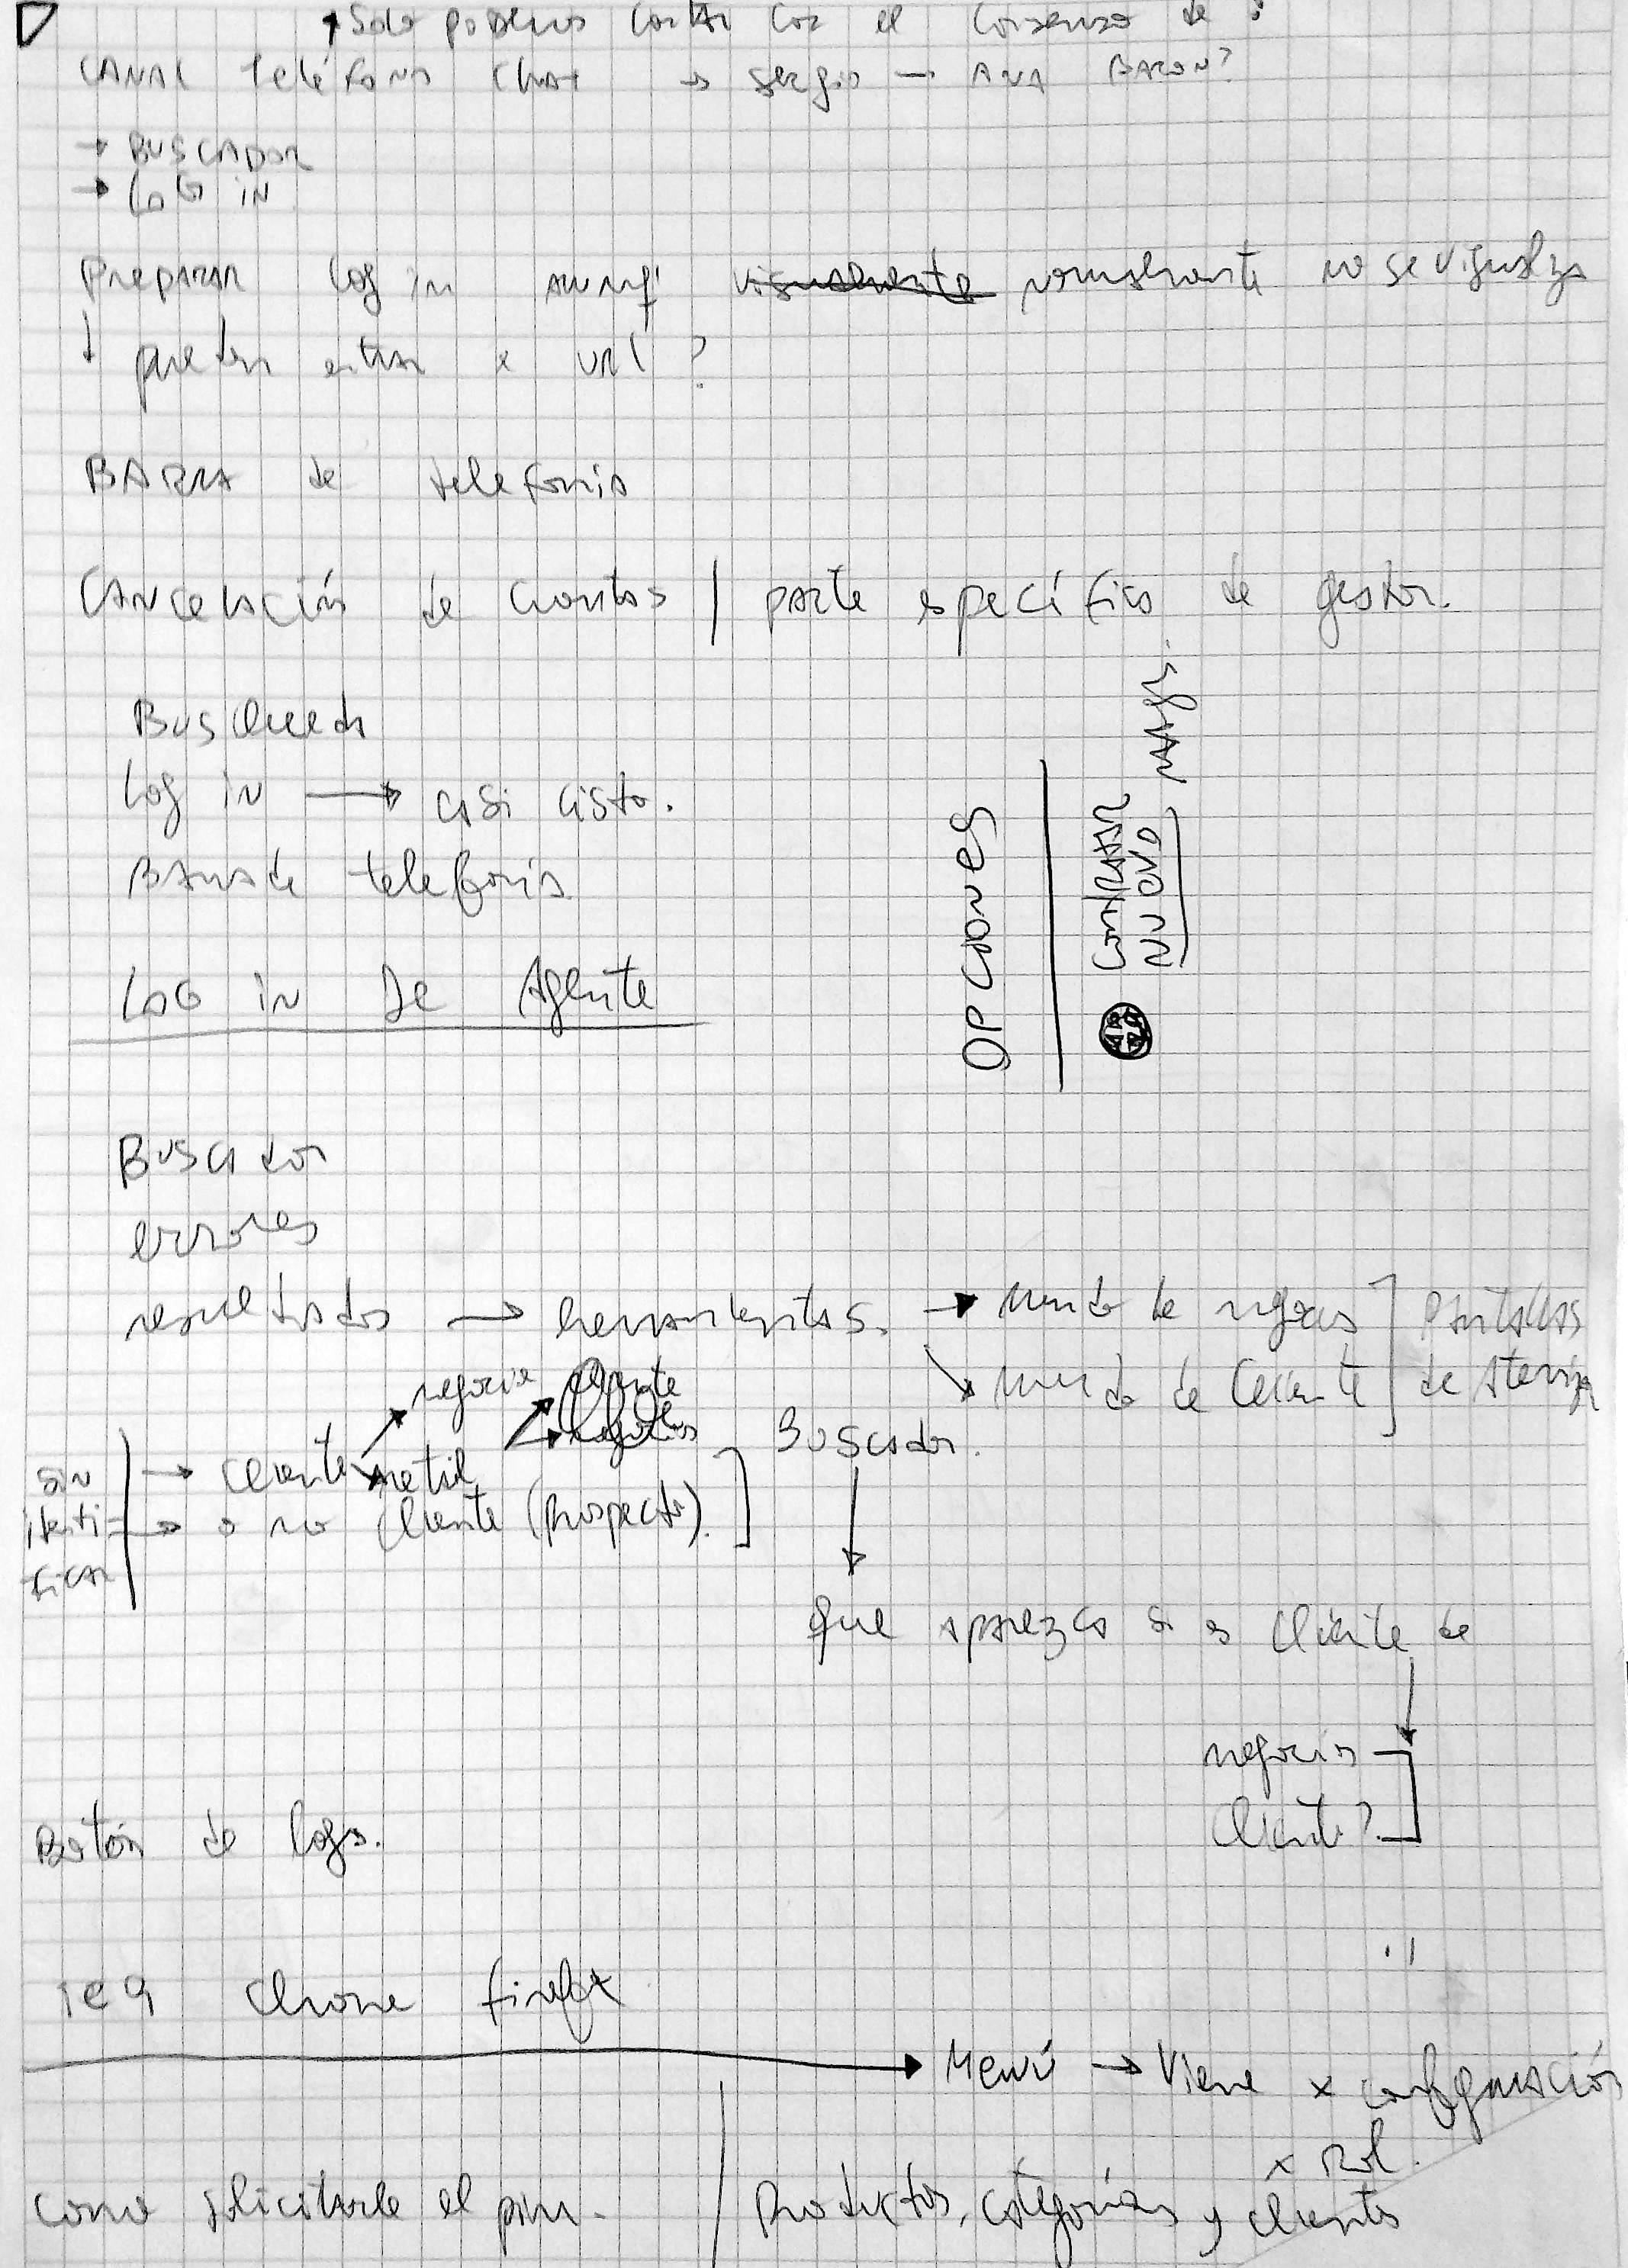 Solo podemos contar con el consenso de :
CANAL teléfono Chat → Sergio — ANA BARON?
→ BUSCADOR
→ LOG IN
Preparar log in aunq' visualmente normalmente no se visualiza
↓ pueden entrar x url?
BARRA de telefonia
Cancelación de cuentas / parte específica de gestor.
Busqueda
Log in → casi listo.
Barra de telefonia
LOG in De Agente
OPCIONES
CONTRATAR
NUEVO
Buscador
errores
resultados → herramientas. → mundo de negocios ] Pantallas
↘ mundo de cliente ] de Atención
negocio cliente
sin identificar → cliente retail
→ o no cliente (prospecto). ]
Buscador.
↓
que aparezca si es cliente de
↓
negocio
cliente?
Botón de logs.
ie9 chrome firefox
→ Menú → Viene x configuración
x Rol.
como solicitarle el | Productos, categorías y clientes